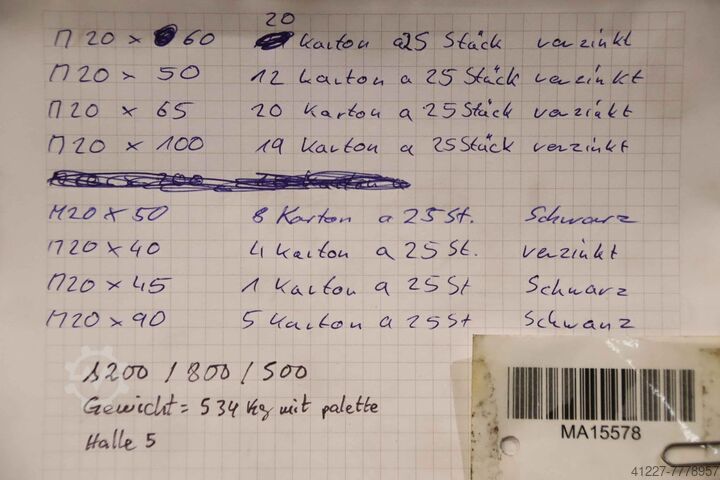 20
M20 x 60 Karton a 25 Stück verzinkt
M20 x 50 12 Karton a 25 Stück verzinkt
M20 x 65 20 Karton a 25 Stück verzinkt
M20 x 100 19 Karton a 25 Stück verzinkt
M20 x 50 8 Karton a 25 St. Schwarz
M20 x 40 4 Karton a 25 St. verzinkt
M20 x 45 1 Karton a 25 St Schwarz
M20 x 90 5 Karton a 25 St Schwarz
1200 / 800 / 500
Gewicht = 534 Kg mit palette
Halle 5
MA15578
41227-7778957